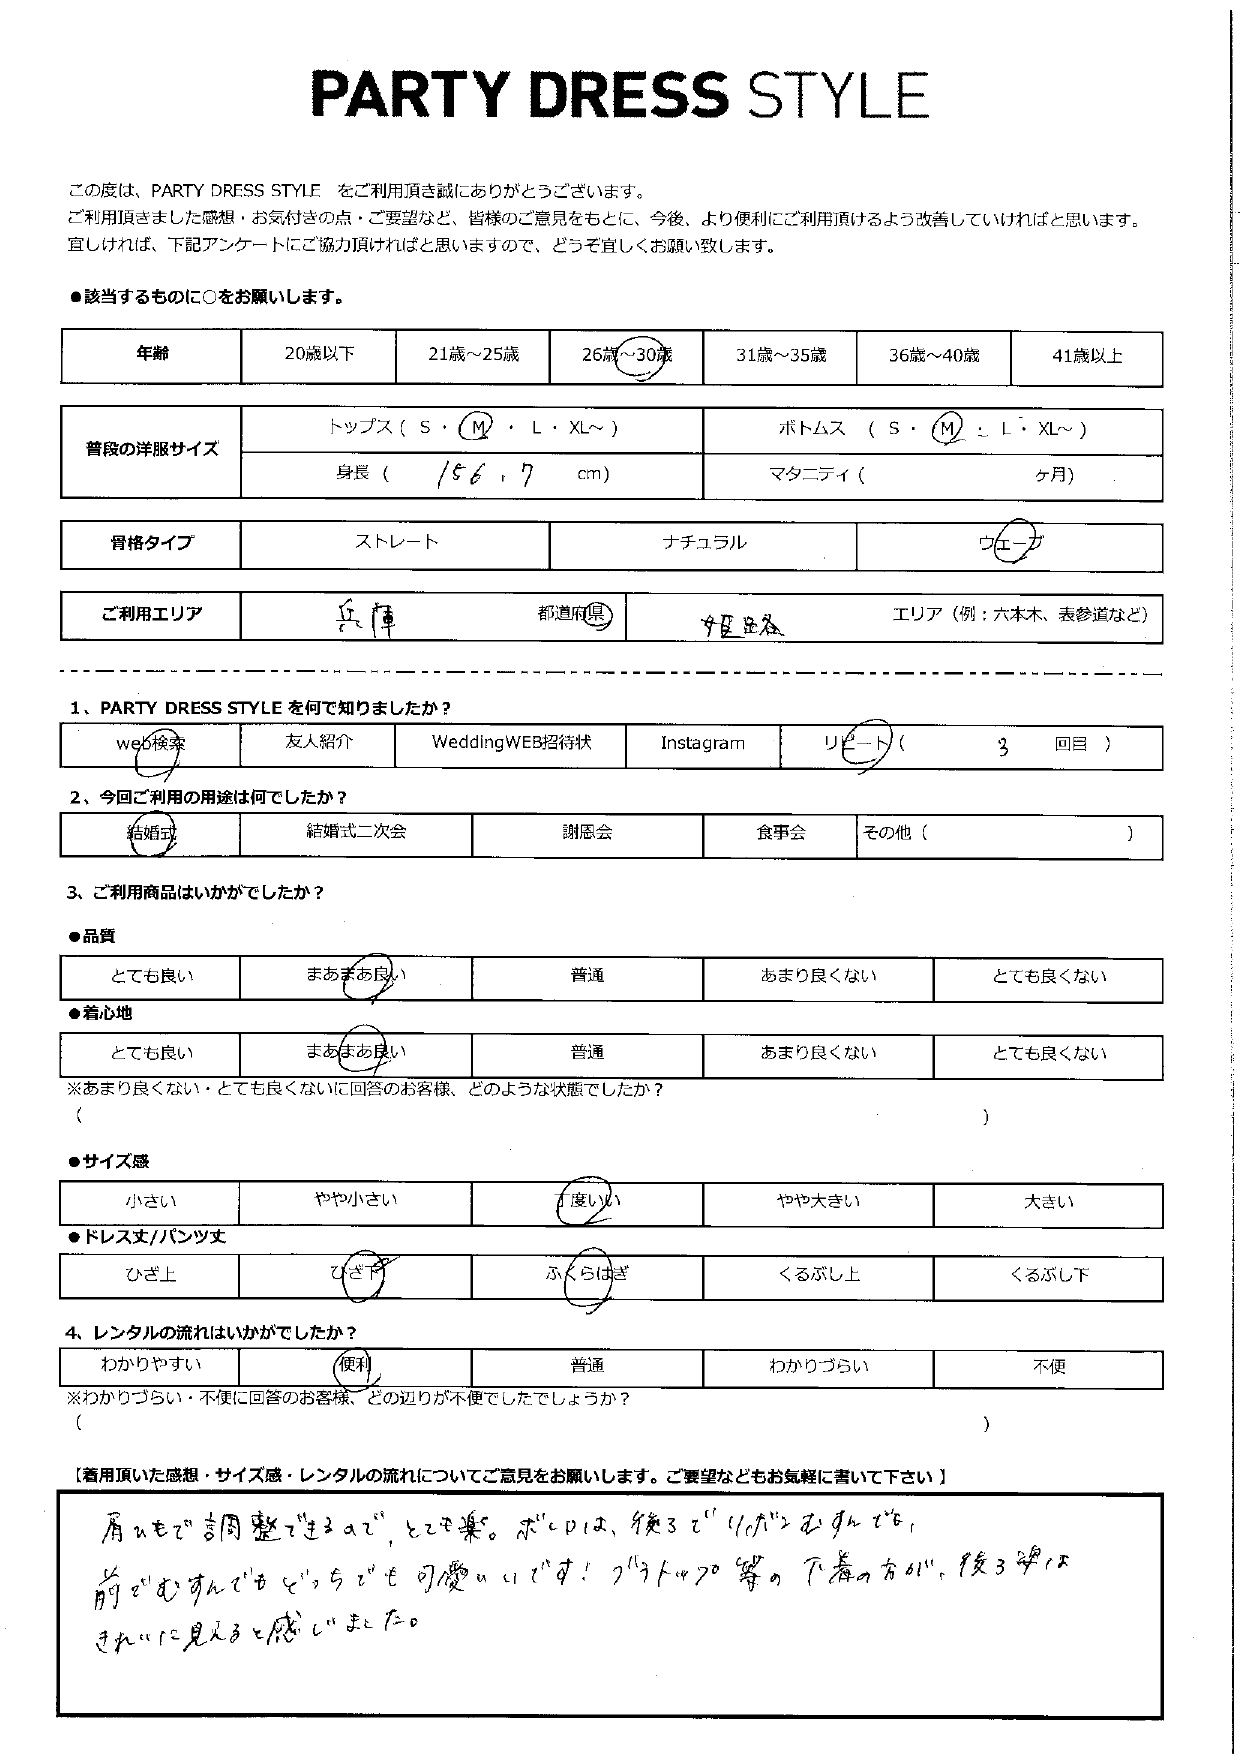 PARTY DRESS STYLE
この度は、PARTY DRESS STYLE をご利用頂き誠にありがとうございます。
ご利用頂きました感想・お気付きの点・ご要望など、皆様のご意見をもとに、今後、より便利にご利用頂けるよう改善していければと思います。
宜しければ、下記アンケートにご協力頂ければと思いますので、どうぞ宜しくお願い致します。
●該当するものに○をお願いします。
年齢 20歳以下 21歳～25歳 26歳～30歳 31歳～35歳 36歳～40歳 41歳以上
普段の洋服サイズ トップス ( S ・ M ・ L ・ XL～ ) ボトムス ( S ・ M ・ L ・ XL～ )
身長 ( 156.7 cm) マタニティ ( ヶ月)
骨格タイプ ストレート ナチュラル ウェーブ
ご利用エリア 兵庫 都道府県 姫路 エリア（例：六本木、表参道など）
1、PARTY DRESS STYLE を何で知りましたか？
web検索 友人紹介 WeddingWEB招待状 Instagram リピート ( 3 回目 )
2、今回ご利用の用途は何でしたか？
結婚式 結婚式二次会 謝恩会 食事会 その他 ( )
3、ご利用商品はいかがでしたか？
●品質
とても良い まあまあ良い 普通 あまり良くない とても良くない
●着心地
とても良い まあまあ良い 普通 あまり良くない とても良くない
※あまり良くない・とても良くないに回答のお客様、どのような状態でしたか？
( )
●サイズ感
小さい やや小さい 丁度いい やや大きい 大きい
●ドレス丈/パンツ丈
ひざ上 ひざ下 ふくらはぎ くるぶし上 くるぶし下
4、レンタルの流れはいかがでしたか？
わかりやすい 便利 普通 わかりづらい 不便
※わかりづらい・不便に回答のお客様、どの辺りが不便でしたでしょうか？
( )
【着用頂いた感想・サイズ感・レンタルの流れについてご意見をお願いします。ご要望などもお気軽に書いて下さい】
肩ひもで調整できるので、とても楽。ボレロは、後ろでリボンむすんでも、
前でむすんでもどっちでも可愛いいです！ブラトップ等の下着の方が、後ろ姿は
きれいに見えると感じました。